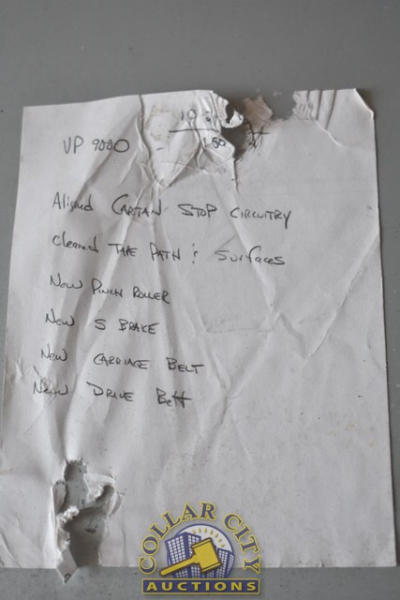 10
VP 9000
1.50
Aligned CAPTAN STOP CIRCUITRY
Cleaned TAPE PATH & Surfaces
New Pinch Roller
New S BRAKE
New CARRIAGE BELT
New DRIVE Belt
COLLAR CITY
AUCTIONS